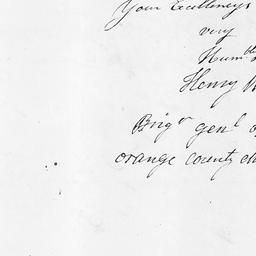 Your Excellency's
very
Humble
Henry
Brigr genl
orange county